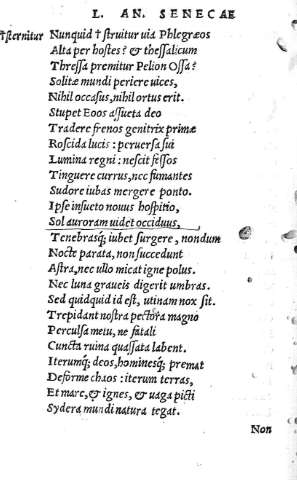 L. AN. SENECAE
†sternitur Nunquid † struitur uia Phlegræos
Alta per hostes? & thessalicum
Thressa premitur Pelion Ossa?
Solitæ mundi periere uices,
Nihil occasus, nihil ortus erit.
Stupet Eoos assueta deo
Tradere frenos genitrix primæ
Roscida lucis: peruersa sui
Lumina regni: nescit fessos
Tinguere currus, nec fumantes
Sudore iubas mergere ponto.
Ipse insueto nouus hospitio,
Sol auroram uidet occiduus,
Tenebrasq; iubet surgere, nondum
Nocte parata, non succedunt
Astra, nec ullo micat igne polus.
Nec luna graueis digerit umbras.
Sed quidquid id est, utinam nox sit.
Trepidant nostra pectora magno
Perculsa metu, ne fatali
Cuncta ruina quassata labent.
Iterumq; deos, hominesq; premat
Deforme chaos: iterum terras,
Et mare, & ignes, & uaga picti
Sydera mundi natura tegat.
Non